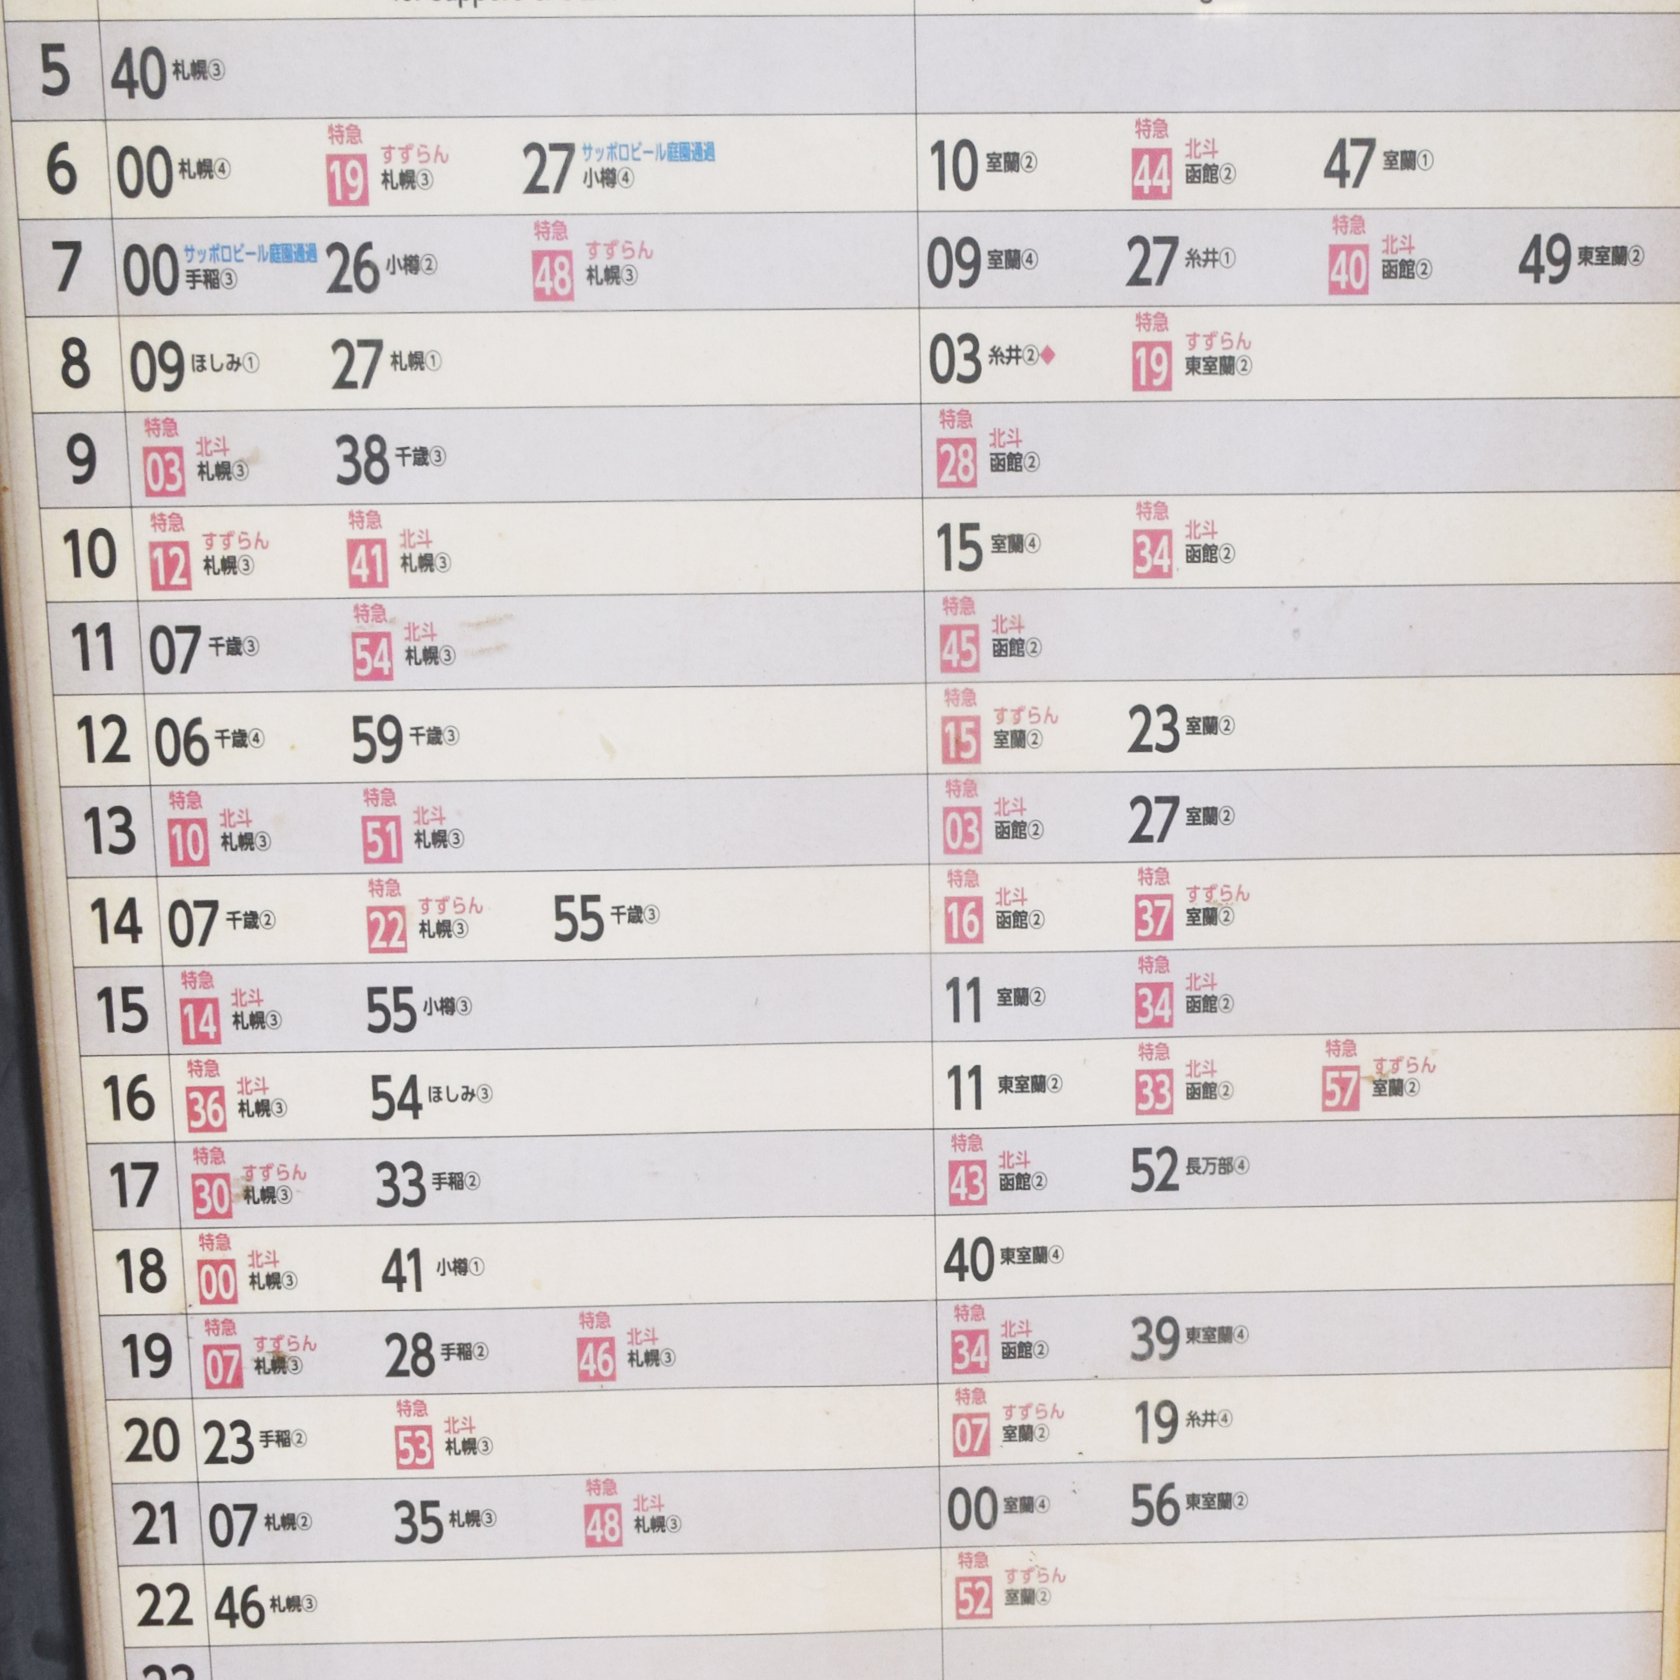 5 40 札幌③
6 00 札幌④ 特急 19 すずらん 札幌③ 27 サッポロビール庭園通過 小樽④ 10 室蘭② 特急 44 北斗 函館② 47 室蘭①
7 00 サッポロビール庭園通過 手稲③ 26 小樽② 特急 48 すずらん 札幌③ 09 室蘭④ 27 糸井① 特急 40 北斗 函館② 49 東室蘭②
8 09 ほしみ① 27 札幌① 03 糸井②◆ 特急 19 すずらん 東室蘭②
9 特急 03 北斗 札幌③ 38 千歳③ 特急 28 北斗 函館②
10 特急 12 すずらん 札幌③ 特急 41 北斗 札幌③ 15 室蘭④ 特急 34 北斗 函館②
11 07 千歳③ 特急 54 北斗 札幌③ 特急 45 北斗 函館②
12 06 千歳④ 59 千歳③ 特急 15 すずらん 室蘭② 23 室蘭②
13 特急 10 北斗 札幌③ 特急 51 北斗 札幌③ 特急 03 北斗 函館② 27 室蘭②
14 07 千歳② 特急 22 すずらん 札幌③ 55 千歳③ 特急 16 北斗 函館② 特急 37 すずらん 室蘭②
15 特急 14 北斗 札幌③ 55 小樽③ 11 室蘭② 特急 34 北斗 函館②
16 特急 36 北斗 札幌③ 54 ほしみ③ 11 東室蘭② 特急 33 北斗 函館② 特急 57 すずらん 室蘭②
17 特急 30 すずらん 札幌③ 33 手稲② 特急 43 北斗 函館② 52 長万部④
18 特急 00 北斗 札幌③ 41 小樽① 40 東室蘭④
19 特急 07 すずらん 札幌③ 28 手稲② 特急 46 北斗 札幌③ 特急 34 北斗 函館② 39 東室蘭④
20 23 手稲② 特急 53 北斗 札幌③ 特急 07 すずらん 室蘭② 19 糸井④
21 07 札幌② 35 札幌③ 特急 48 北斗 札幌③ 00 室蘭④ 56 東室蘭②
22 46 札幌③ 特急 52 すずらん 室蘭②
23